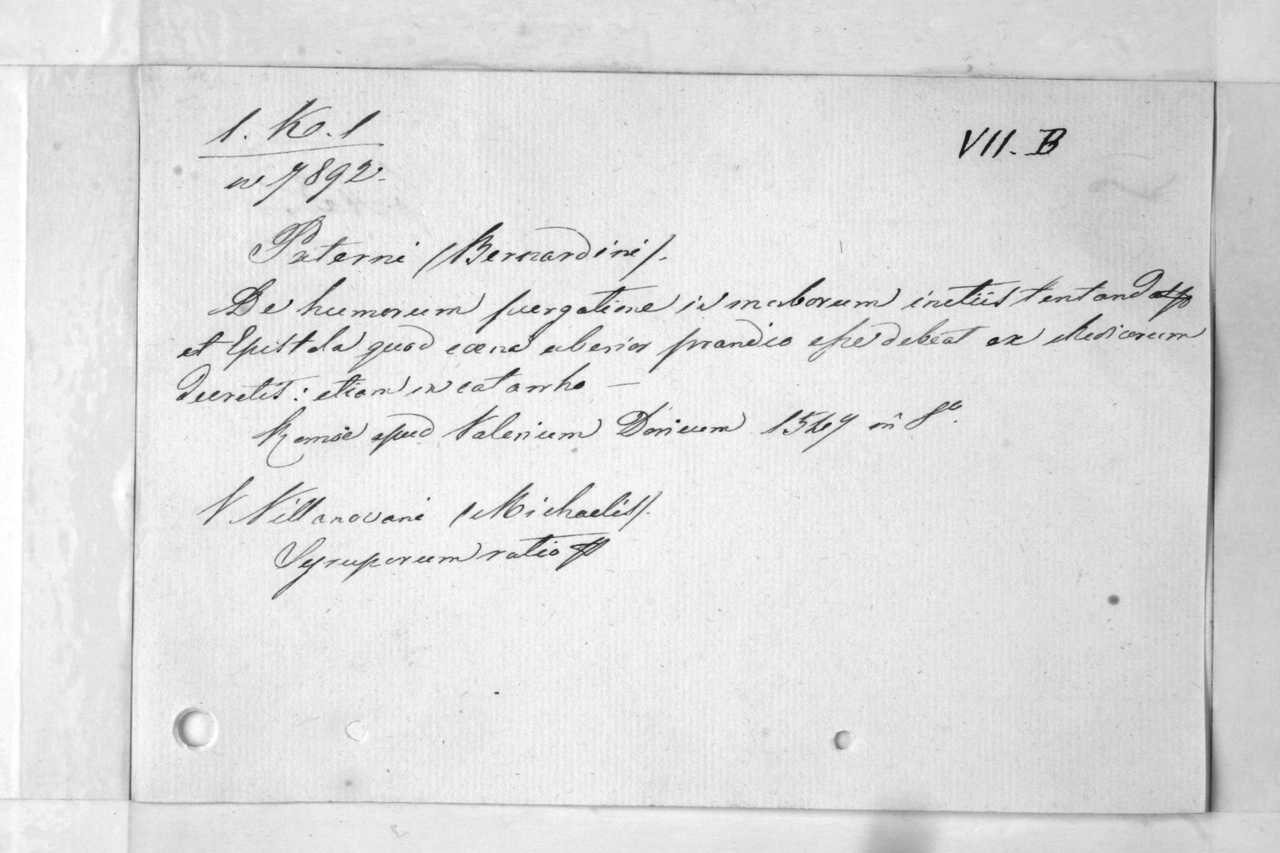 1. K. 1
n 7892.
VII. B
Paterni (Bernardini).
De humorum purgatione in morborum initiis tentanda
et Epistola quod cœna uberior prandio esse debeat ex Medicorum
decretis: etiam in catarrho —
Romæ apud Valerium Doricum 1547 in 8º.
V Villanovani (Michaelis).
Syruporum ratio